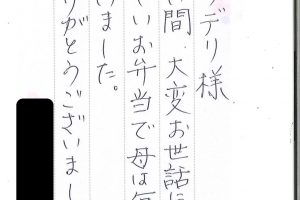 デリ様
間 大変お世話に
いお弁当で母は毎
いました。
りがとうございまし